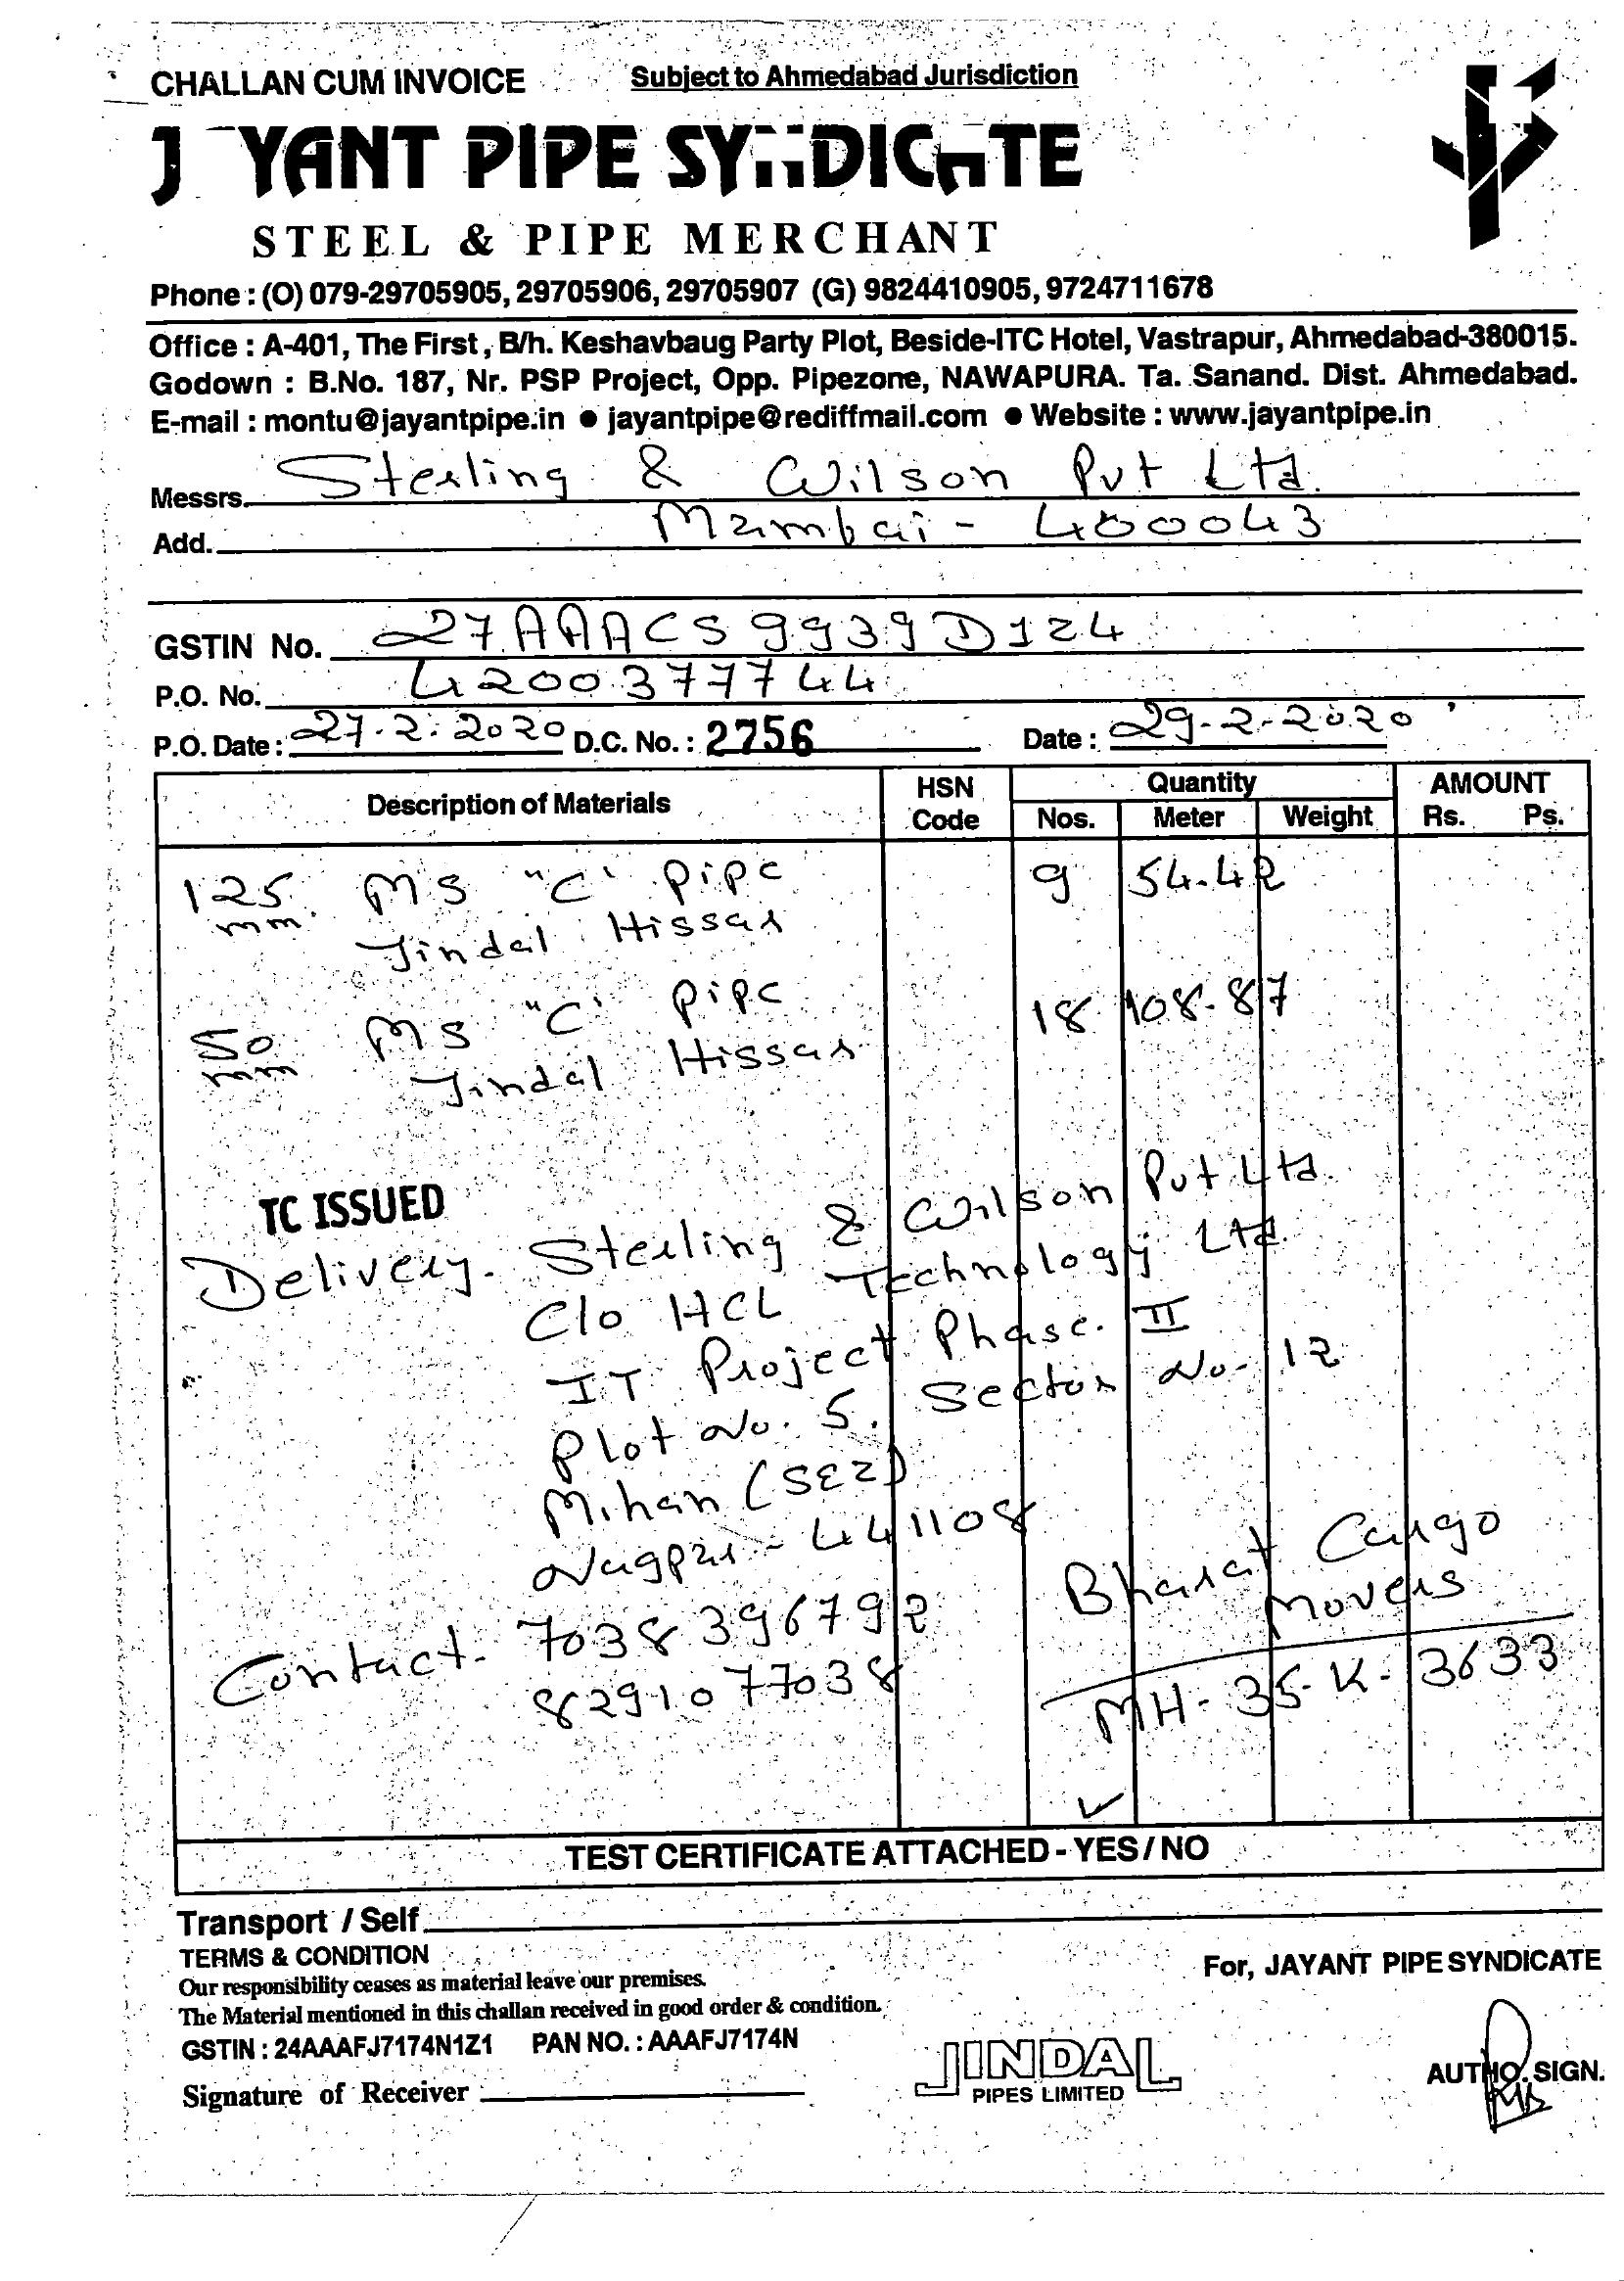 CHALLAN CUM INVOICE Subject to Ahmedabad Jurisdiction
JAYANT PIPE SYNDICATE
STEEL & PIPE MERCHANT
Phone : (O) 079-29705905, 29705906, 29705907 (G) 9824410905, 9724711678
Office : A-401, The First, B/h. Keshavbaug Party Plot, Beside-ITC Hotel, Vastrapur, Ahmedabad-380015.
Godown : B.No. 187, Nr. PSP Project, Opp. Pipezone, NAWAPURA. Ta. Sanand. Dist. Ahmedabad.
E-mail : montu@jayantpipe.in ● jayantpipe@rediffmail.com ● Website : www.jayantpipe.in
Messrs. Sterling & Wilson Pvt Ltd.
Add. Mumbai - 400043
GSTIN No. 27AAACS9939D1Z4
P.O. No. 4200377744
P.O. Date : 27.2.2020 D.C. No. : 2756 Date : 29-2-2020
Description of Materials HSN Code Quantity AMOUNT
Nos. Meter Weight Rs. Ps.
125 MS "C" Pipe 9 54.42
mm Jindal Hissar
50 MS "C" Pipe 18 108.87
mm Jindal Hissar
TC ISSUED
Delivery. Sterling & Wilson Pvt Ltd
C/o HCL Technology Ltd
IT Project Phase. II
Plot No. 5. Sector No- 12
Mihan (SEZ)
Nagpur - 441108
Contact. 7038396792
8291077038
Bharat Cargo
Movers
MH-35-K-3633
✓
TEST CERTIFICATE ATTACHED - YES / NO
Transport / Self
TERMS & CONDITION
Our responsibility ceases as material leave our premises.
The Material mentioned in this challan received in good order & condition.
GSTIN : 24AAAFJ7174N1Z1 PAN NO. : AAAFJ7174N
Signature of Receiver
For, JAYANT PIPE SYNDICATE
JINDAL
PIPES LIMITED
AUTHO. SIGN.